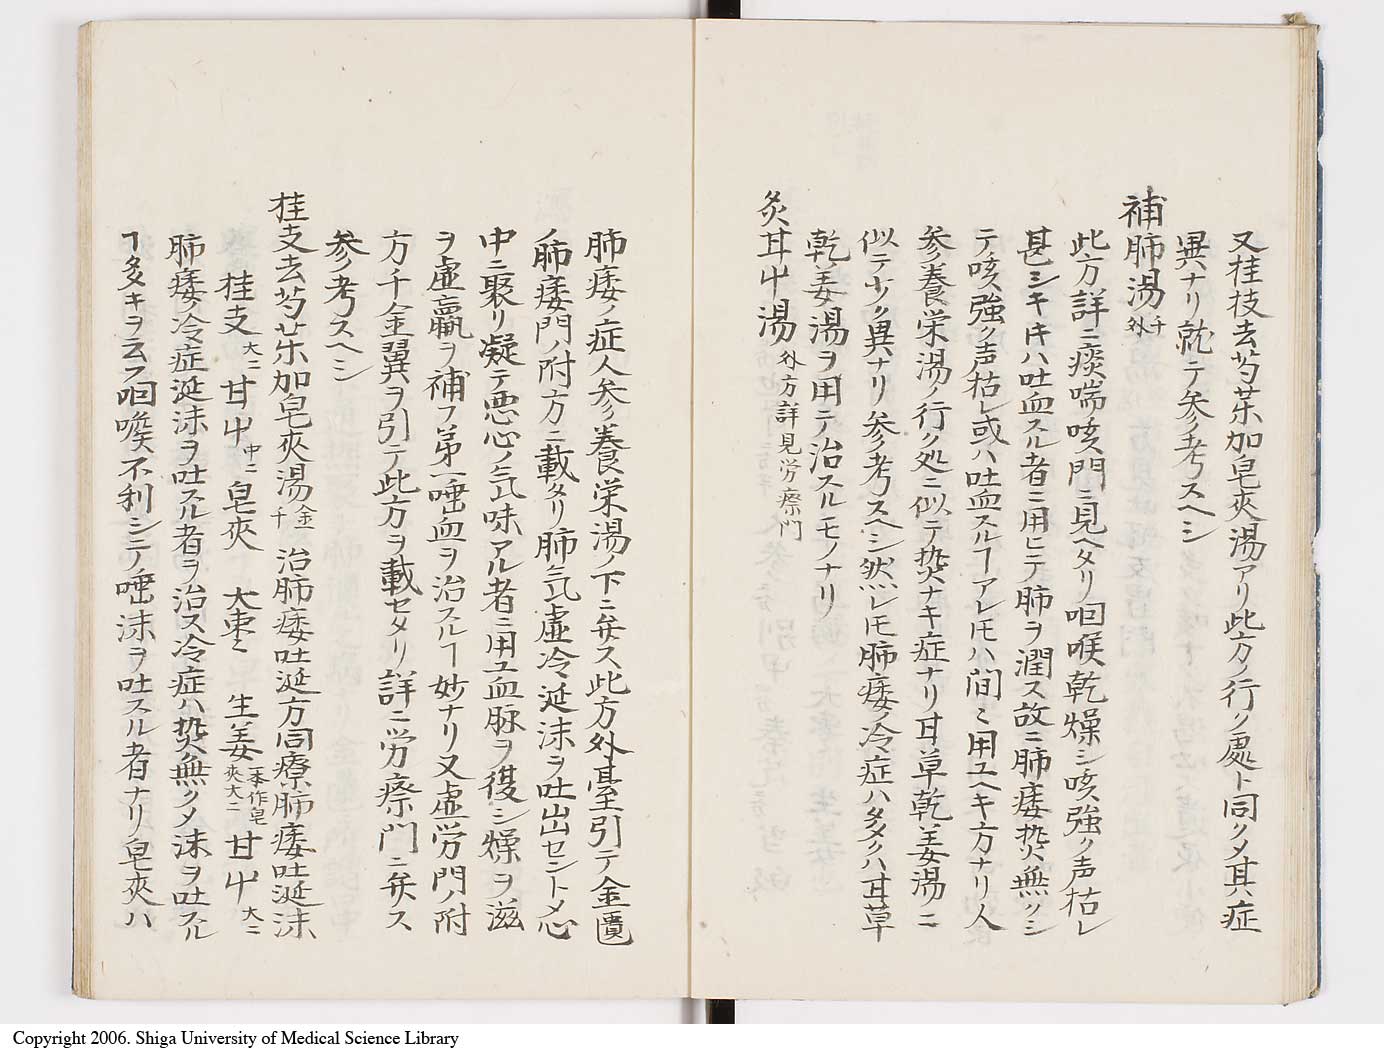 又桂枝去芍薬加皂莢湯アリ此方ノ行ク處ト同クメ其症
異ナリ就テ参考スヘシ
補肺湯 千外
此方詳ニ痰喘咳門ニ見ヘタリ咽喉乾燥シ咳強ク声枯レ
甚シキ𪜈ハ吐血スル者ニ用ヒテ肺ヲ潤ス故ニ肺痿𤍠無クシ
テ咳強ク声枯レ或ハ吐血スルヿアレ𪜈ハ間ミ用ユヘキ方ナリ人
参養栄湯ノ行ク処ニ似テ𤍠ナキ症ナリ甘草乾姜湯ニ
似テ少ク異ナリ参考スヘシ然レ𪜈肺痿ノ冷症ハ多クハ甘草
乾姜湯ヲ用テ治スルモノナリ
炙甘屮湯 外方詳見労瘵門
肺痿ノ症人参養栄湯ノ下ニ弁ス此方外臺引テ金匱
ノ肺痿門ノ附方ニ載タリ肺気虚冷涎沫ヲ吐出セントメ心
中ニ聚リ凝テ悪心ノ気味アル者ニ用ユ血脉ヲ復シ燥ヲ滋
ヲ虚羸ヲ補フ第一唾血ヲ治スルヿ妙ナリ又虚労門ノ附
方千金翼ヲ引テ此方ヲ載セタリ詳ニ労瘵門ニ弁ス
参考スヘシ
桂支去芍薬加皂莢湯 金千 治肺痿吐涎方同療肺痿吐涎沫
桂支 大二 甘屮 中二 皂莢 大棗ミ 生姜 一本作皂莢大二 甘屮 大ニ
肺痿冷症涎沫ヲ吐スル者ヲ治ス冷症ハ𤍠無クメ沫ヲ吐スル
ヿ多キヲ云フ咽喉不利シテノ唾沫ヲ吐スル者ナリ皂莢ハ
Copyright 2006. Shiga University of Medical Science Library